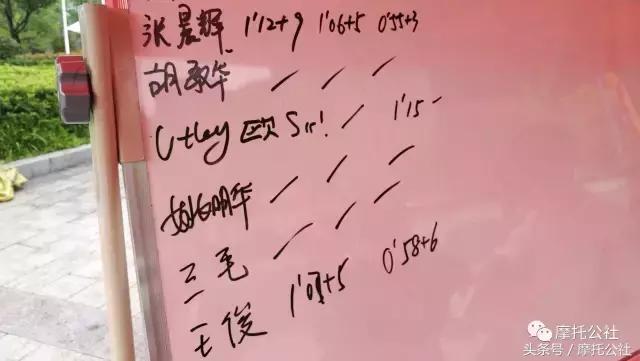 张晨辉 1'12+9 1'06+5 0'55+3
胡承华 / / /
Utley 欧Sir! / 1'15 -
明华 / / /
三毛 / / /
王俊 1'01+5 0'58+6
摩托公社
头条号 / 摩托公社